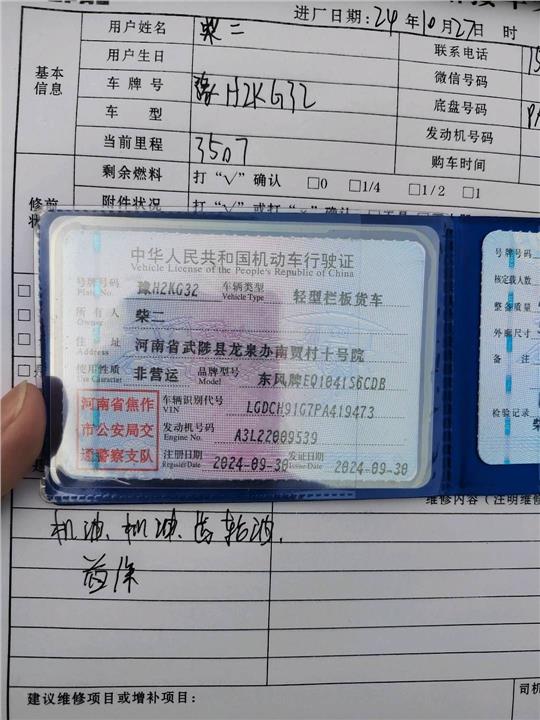 进厂日期：24年10月27日 时
用户姓名 柴二 联系电话
用户生日 微信号码
基本信息
车牌号 豫H2KG32 底盘号码
车型 发动机号码
当前里程 3507 购车时间
剩余燃料 打“√”确认 □0 □1/4 □1/2 □1
附件状况
中华人民共和国机动车行驶证
Vehicle License of the People's Republic of China
号牌号码 豫H2KG32 车辆类型 轻型栏板货车
Plate No. Vehicle Type
所有人 柴二
Owner
住址 河南省武陟县龙泉办南贾村十号院
Address
使用性质 非营运 品牌型号 东风牌EQ1041S6CDB
Use Character Model
河南省焦作
市公安局交
通警察支队
车辆识别代号 LGDCH91G7PA419473
VIN
发动机号码 A3L22009539
Engine No.
注册日期 2024-09-30 发证日期 2024-09-30
Register Date Issue Date
号牌号码
核定载人数
整备质量
外廓尺寸
备注
检验记录
维修内容（注明维修
机油、机油、齿轮油、
首保
建议维修项目或增补项目：
司机